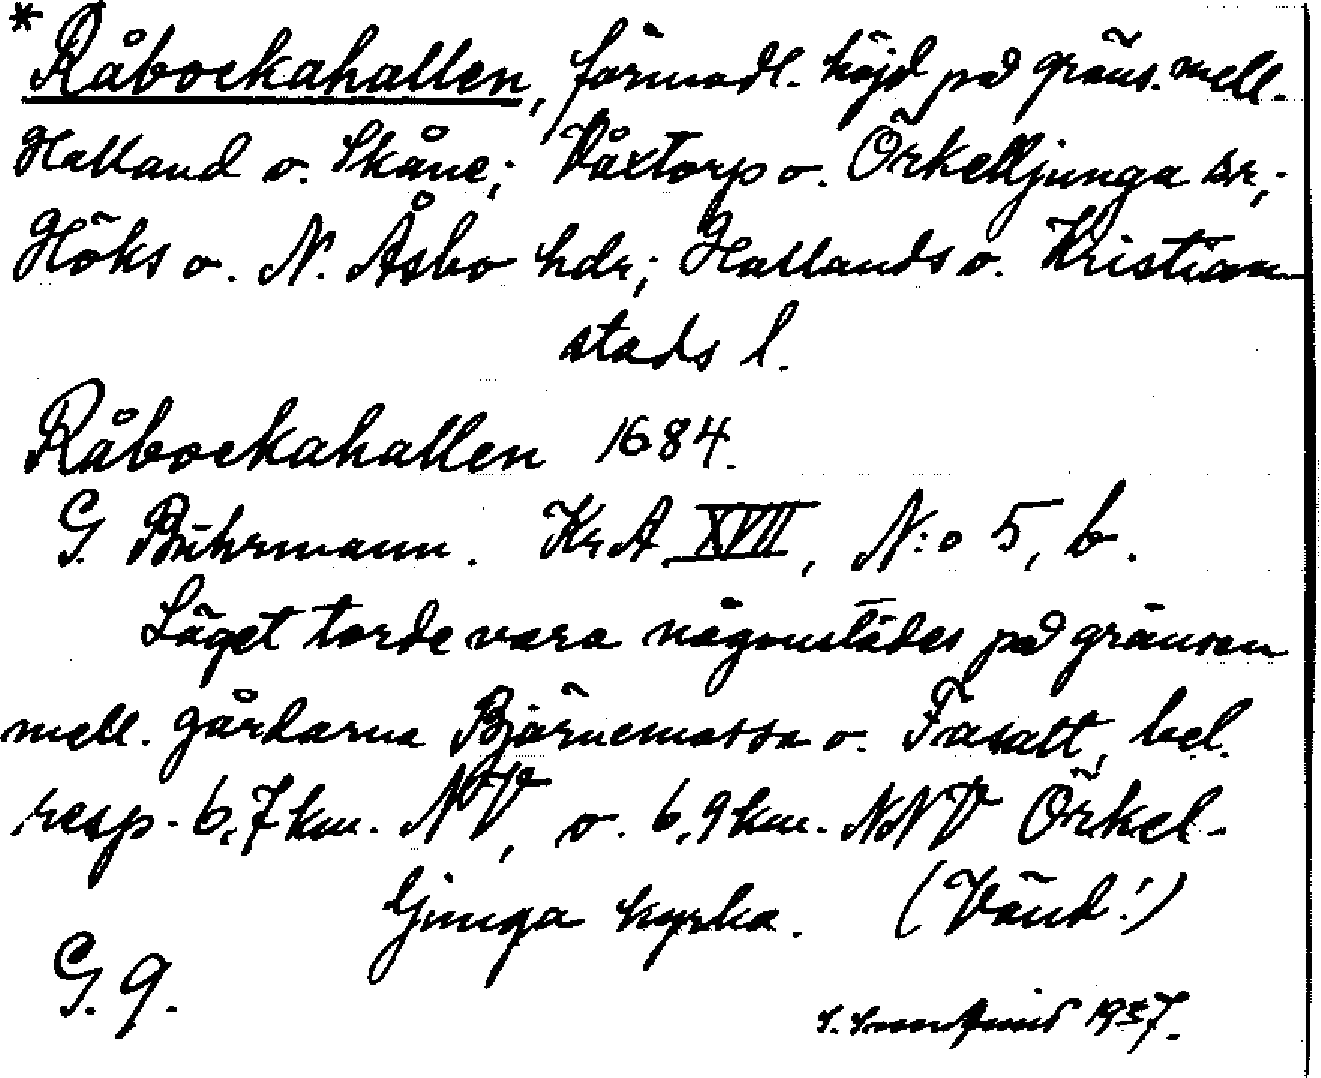 *Råbockahallen, förmodl. höjd på gräns. mell.
Halland o. Skåne; Våxtorp o. Örkelljunga snr;
Höks o. N. Åsbo hdr; Hallands o. Kristian-
stads l.
Råbockahallen 1684.
G. Buhrmann. KrA XVII, N:o 5, b.
Läget torde vara någonstädes på gränsen
mell. gårdarna Björnemossa o. Fasalt, bel.
resp. 6,7 km. NV, o. 6,9 km. NNV Örkel-
ljunga kyrka. (Vänd!)
G. 9.
1937.